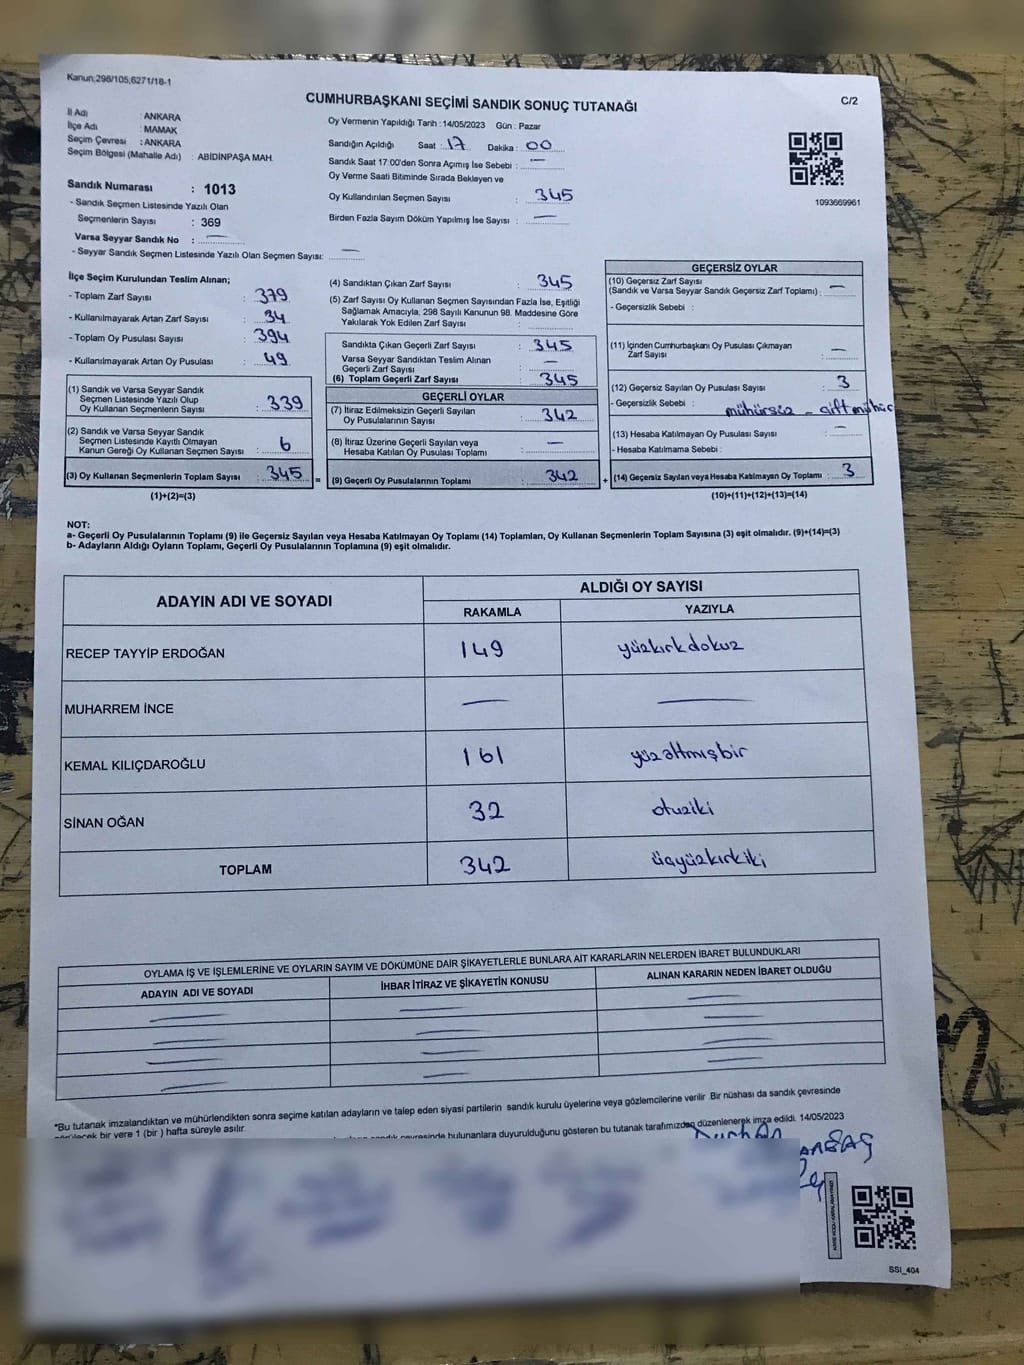 Kanun;298/105;6271/18-1
CUMHURBAŞKANI SEÇİMİ SANDIK SONUÇ TUTANAĞI
C/2
İl Adı : ANKARA
İlçe Adı : MAMAK
Seçim Çevresi : ANKARA
Seçim Bölgesi (Mahalle Adı) : ABİDİNPAŞA MAH.
Sandık Numarası : 1013
- Sandık Seçmen Listesinde Yazılı Olan
Seçmenlerin Sayısı : 369
Varsa Seyyar Sandık No : —
- Seyyar Sandık Seçmen Listesinde Yazılı Olan Seçmen Sayısı: —
Oy Vermenin Yapıldığı Tarih : 14/05/2023 Gün : Pazar
Sandığın Açıldığı Saat : 17 Dakika : 00
Sandık Saat 17:00'den Sonra Açımış İse Sebebi : —
Oy Verme Saati Bitiminde Sırada Bekleyen ve
Oy Kullandırılan Seçmen Sayısı : 345
Birden Fazla Sayım Döküm Yapılmış İse Sayısı : —
1093669961
İlçe Seçim Kurulundan Teslim Alınan;
- Toplam Zarf Sayısı : 379
- Kullanılmayarak Artan Zarf Sayısı : 34
- Toplam Oy Pusulası Sayısı : 394
- Kullanılmayarak Artan Oy Pusulası : 49
(1) Sandık ve Varsa Seyyar Sandık
Seçmen Listesinde Yazılı Olup
Oy Kullanan Seçmenlerin Sayısı : 339
(2) Sandık ve Varsa Seyyar Sandık
Seçmen Listesinde Kayıtlı Olmayan
Kanun Gereği Oy Kullanan Seçmen Sayısı : 6
(3) Oy Kullanan Seçmenlerin Toplam Sayısı : 345 =
(1)+(2)=(3)
(4) Sandıktan Çıkan Zarf Sayısı : 345
(5) Zarf Sayısı Oy Kullanan Seçmen Sayısından Fazla İse, Eşitliği
Sağlamak Amacıyla, 298 Sayılı Kanunun 98. Maddesine Göre
Yakılarak Yok Edilen Zarf Sayısı :
Sandıkta Çıkan Geçerli Zarf Sayısı : 345
Varsa Seyyar Sandıktan Teslim Alınan
Geçerli Zarf Sayısı : —
(6) Toplam Geçerli Zarf Sayısı : 345
GEÇERLİ OYLAR
(7) İtiraz Edilmeksizin Geçerli Sayılan
Oy Pusulalarının Sayısı : 342
(8) İtiraz Üzerine Geçerli Sayılan veya
Hesaba Katılan Oy Pusulası Toplamı : —
(9) Geçerli Oy Pusulalarının Toplamı : 342 +
GEÇERSİZ OYLAR
(10) Geçersiz Zarf Sayısı
(Sandık ve Varsa Seyyar Sandık Geçersiz Zarf Toplamı) : —
- Geçersizlik Sebebi :
(11) İçinden Cumhurbaşkanı Oy Pusulası Çıkmayan
Zarf Sayısı : —
(12) Geçersiz Sayılan Oy Pusulası Sayısı : 3
- Geçersizlik Sebebi : mühürsüz - çiftmühür
(13) Hesaba Katılmayan Oy Pusulası Sayısı : —
- Hesaba Katılmama Sebebi :
(14) Geçersiz Sayılan veya Hesaba Katılmayan Oy Toplamı : 3
(10)+(11)+(12)+(13)=(14)
NOT:
a- Geçerli Oy Pusulalarının Toplamı (9) ile Geçersiz Sayılan veya Hesaba Katılmayan Oy Toplamı (14) Toplamları, Oy Kullanan Seçmenlerin Toplam Sayısına (3) eşit olmalıdır. (9)+(14)=(3)
b- Adayların Aldığı Oyların Toplamı, Geçerli Oy Pusulalarının Toplamına (9) eşit olmalıdır.
ADAYIN ADI VE SOYADI ALDIĞI OY SAYISI
RAKAMLA YAZIYLA
RECEP TAYYİP ERDOĞAN 149 yüzkırkdokuz
MUHARREM İNCE — —
KEMAL KILIÇDAROĞLU 161 yüzaltmışbir
SİNAN OĞAN 32 otuziki
TOPLAM 342 üçyüzkırkiki
OYLAMA İŞ VE İŞLEMLERİNE VE OYLARIN SAYIM VE DÖKÜMÜNE DAİR ŞİKAYETLERLE BUNLARA AİT KARARLARIN NELERDEN İBARET BULUNDUKLARI
ADAYIN ADI VE SOYADI İHBAR İTİRAZ VE ŞİKAYETİN KONUSU ALINAN KARARIN NEDEN İBARET OLDUĞU
*Bu tutanak imzalandıktan ve mühürlendikten sonra seçime katılan adayların ve talep eden siyasi partilerin sandık kurulu üyelerine veya gözlemcilerine verilir. Bir nüshası da sandık çevresinde
görülecek bir yere 1 (bir) hafta süreyle asılır.
sandık çevresinde bulunanlara duyurulduğunu gösteren bu tutanak tarafımızdan düzenlenerek imza edildi. 14/05/2023
SSI_404